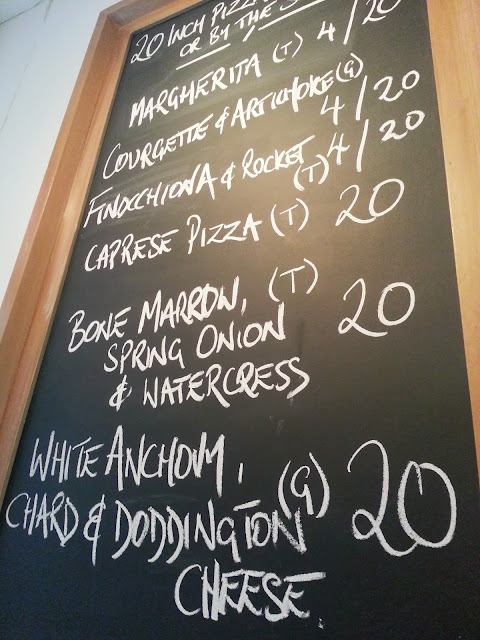 20 INCH PIZZA
OR BY THE
MARGHERITA (T) 4/20
COURGETTE & ARTICHOKE (G)
4/20
FINOCCHIONA & ROCKET 4/20
(T)
CAPRESE PIZZA (T) 20
BONE MARROW, (T)
SPRING ONION 20
& WATERCRESS
WHITE ANCHOVY,
CHARD & DODDINGTON (G) 20
CHEESE.